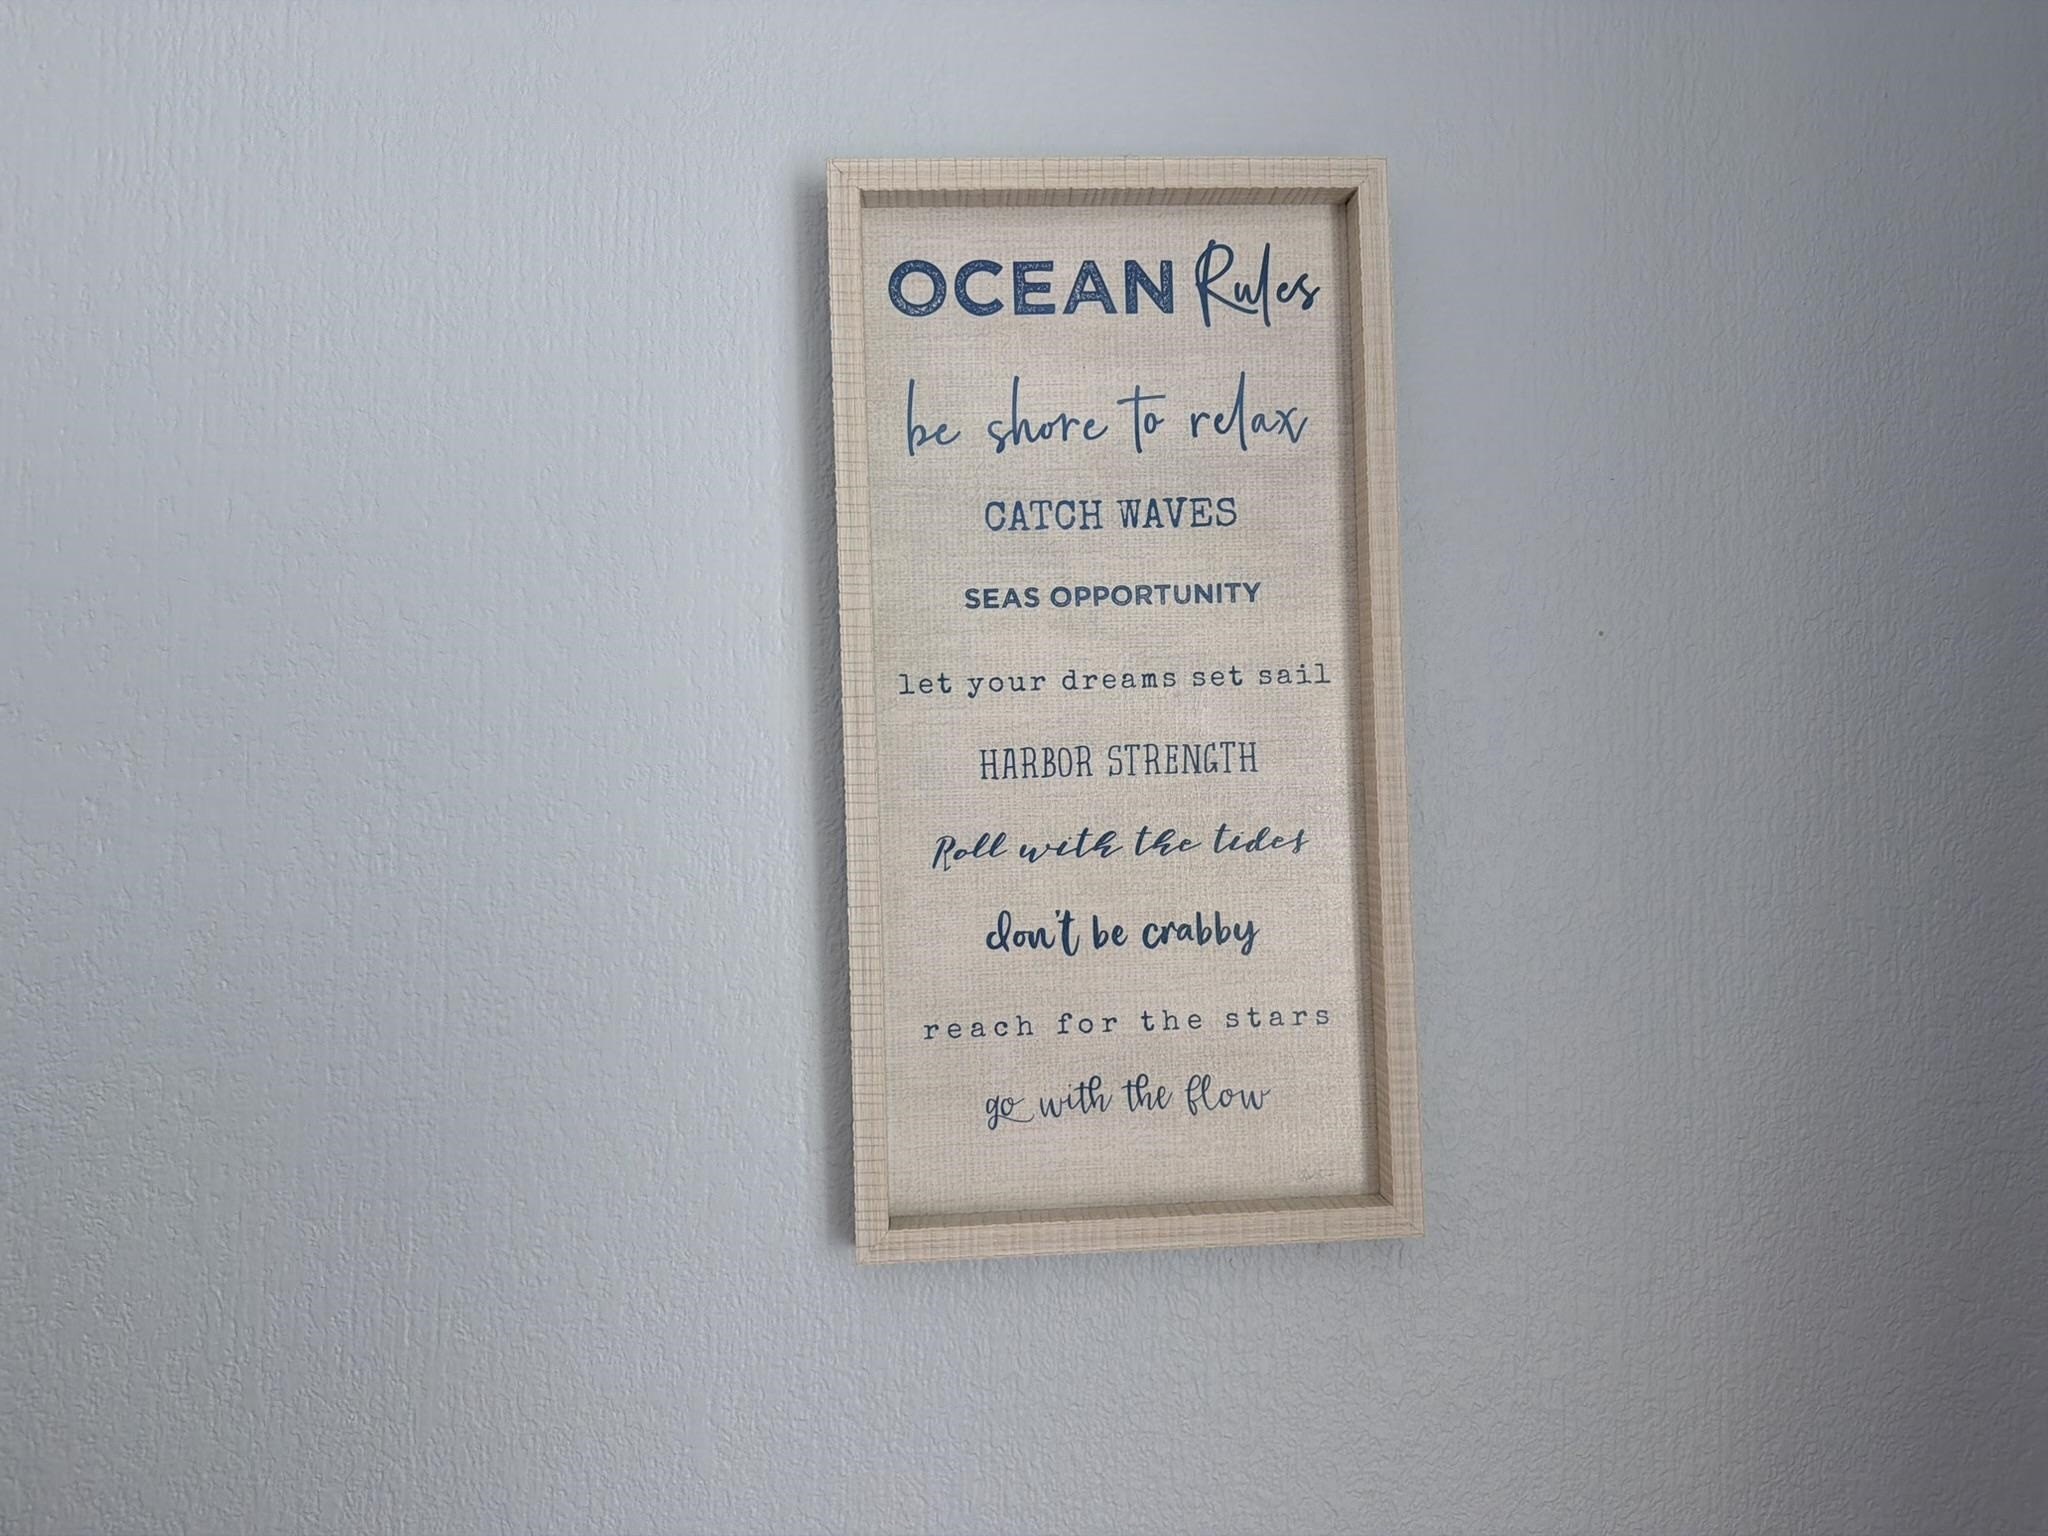 OCEAN Rules
be shore to relax
CATCH WAVES
SEAS OPPORTUNITY
let your dreams set sail
HARBOR STRENGTH
Roll with the tides
don't be crabby
reach for the stars
go with the flow